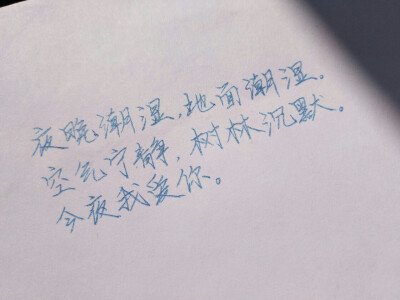 夜晚潮湿，地面潮湿。
空气宁静，树林沉默。
今夜我爱你。